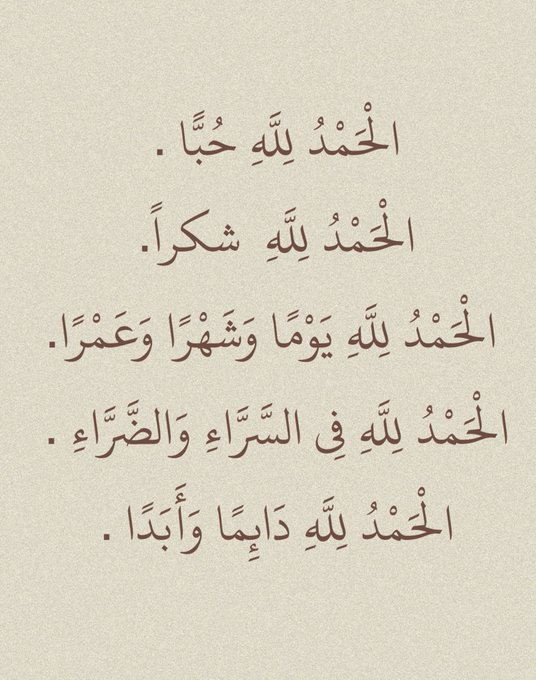 الْحَمْدُ لِلَّهِ حُبًّا .
الْحَمْدُ لِلَّهِ شكراً.
الْحَمْدُ لِلَّهِ يَوْمًا وَشَهْرًا وَعَمْرًا.
الْحَمْدُ لِلَّهِ فِى السَّرَّاءِ وَالضَّرَّاءِ .
الْحَمْدُ لِلَّهِ دَائِمًا وَأَبَدًا .